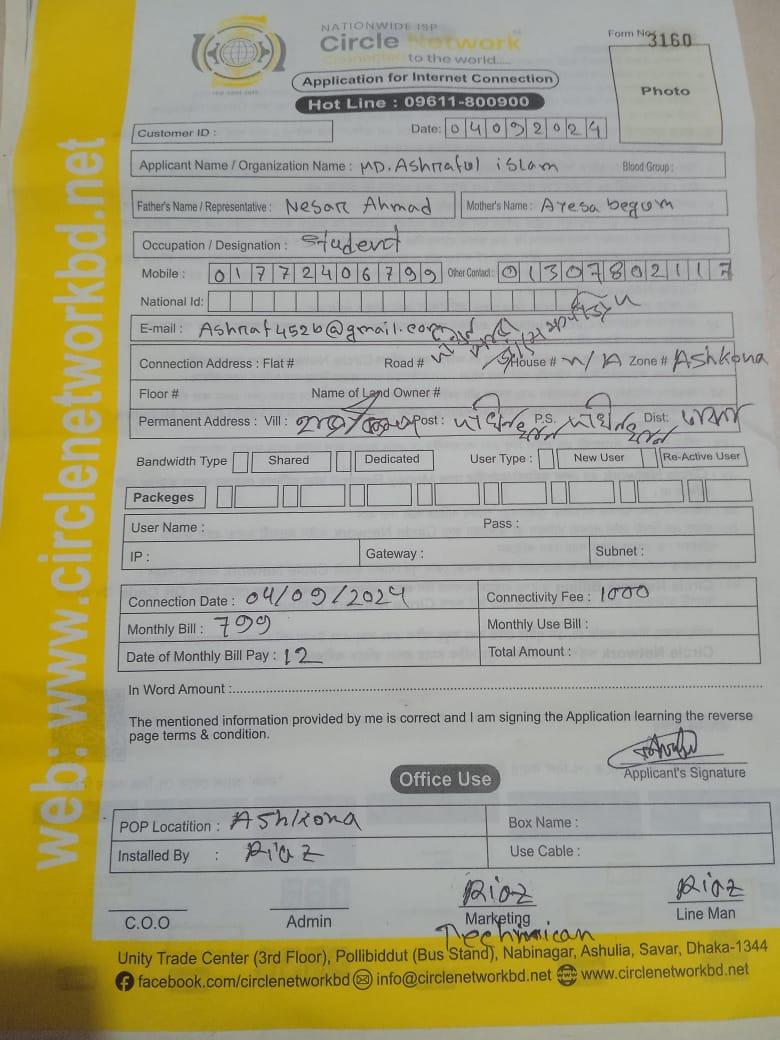 NATIONWIDE ISP
Circle Network
Connected to the world.....
Application for Internet Connection
Hot Line : 09611-800900
Form No 3160
Photo
Customer ID :
Date: 04092024
Applicant Name / Organization Name : MD. Ashraful islam Blood Group :
Father's Name / Representative : Nesar Ahmad Mother's Name : Ayesa begum
Occupation / Designation : Student
Mobile : 01772406799 Other Contact : 01307802117
National Id:
E-mail : Ashraf4526@gmail.com
Connection Address : Flat # Road # House # N/A Zone # Ashkona
Floor # Name of Land Owner #
Permanent Address : Vill : Post : P.S. Dist:
Bandwidth Type Shared Dedicated User Type : New User Re-Active User
Packeges
User Name : Pass :
IP : Gateway : Subnet :
Connection Date : 04/09/2024 Connectivity Fee : 1000
Monthly Bill : 799 Monthly Use Bill :
Date of Monthly Bill Pay : 12 Total Amount :
In Word Amount :
The mentioned information provided by me is correct and I am signing the Application learning the reverse
page terms & condition.
Applicant's Signature
Office Use
POP Locatition : Ashkona Box Name :
Installed By : Riaz Use Cable :
Riaz Riaz
C.O.O Admin Marketing Line Man
Technican
Unity Trade Center (3rd Floor), Pollibiddut (Bus Stand), Nabinagar, Ashulia, Savar, Dhaka-1344
facebook.com/circlenetworkbd info@circlenetworkbd.net www.circlenetworkbd.net
web: www.circlenetworkbd.net